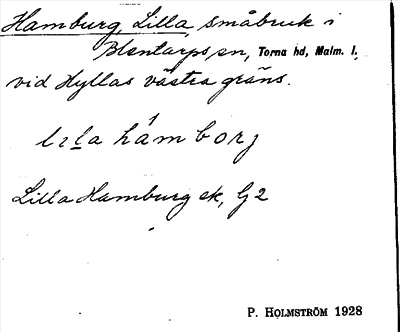 Hamburg, Lilla, småbruk i
Blentarps sn, Torna hd, Malm. l,
vid Hyllas västra gräns.
lıla hámborj
Lilla Hamburg ek, G2
P. HOLMSTRÖM 1928